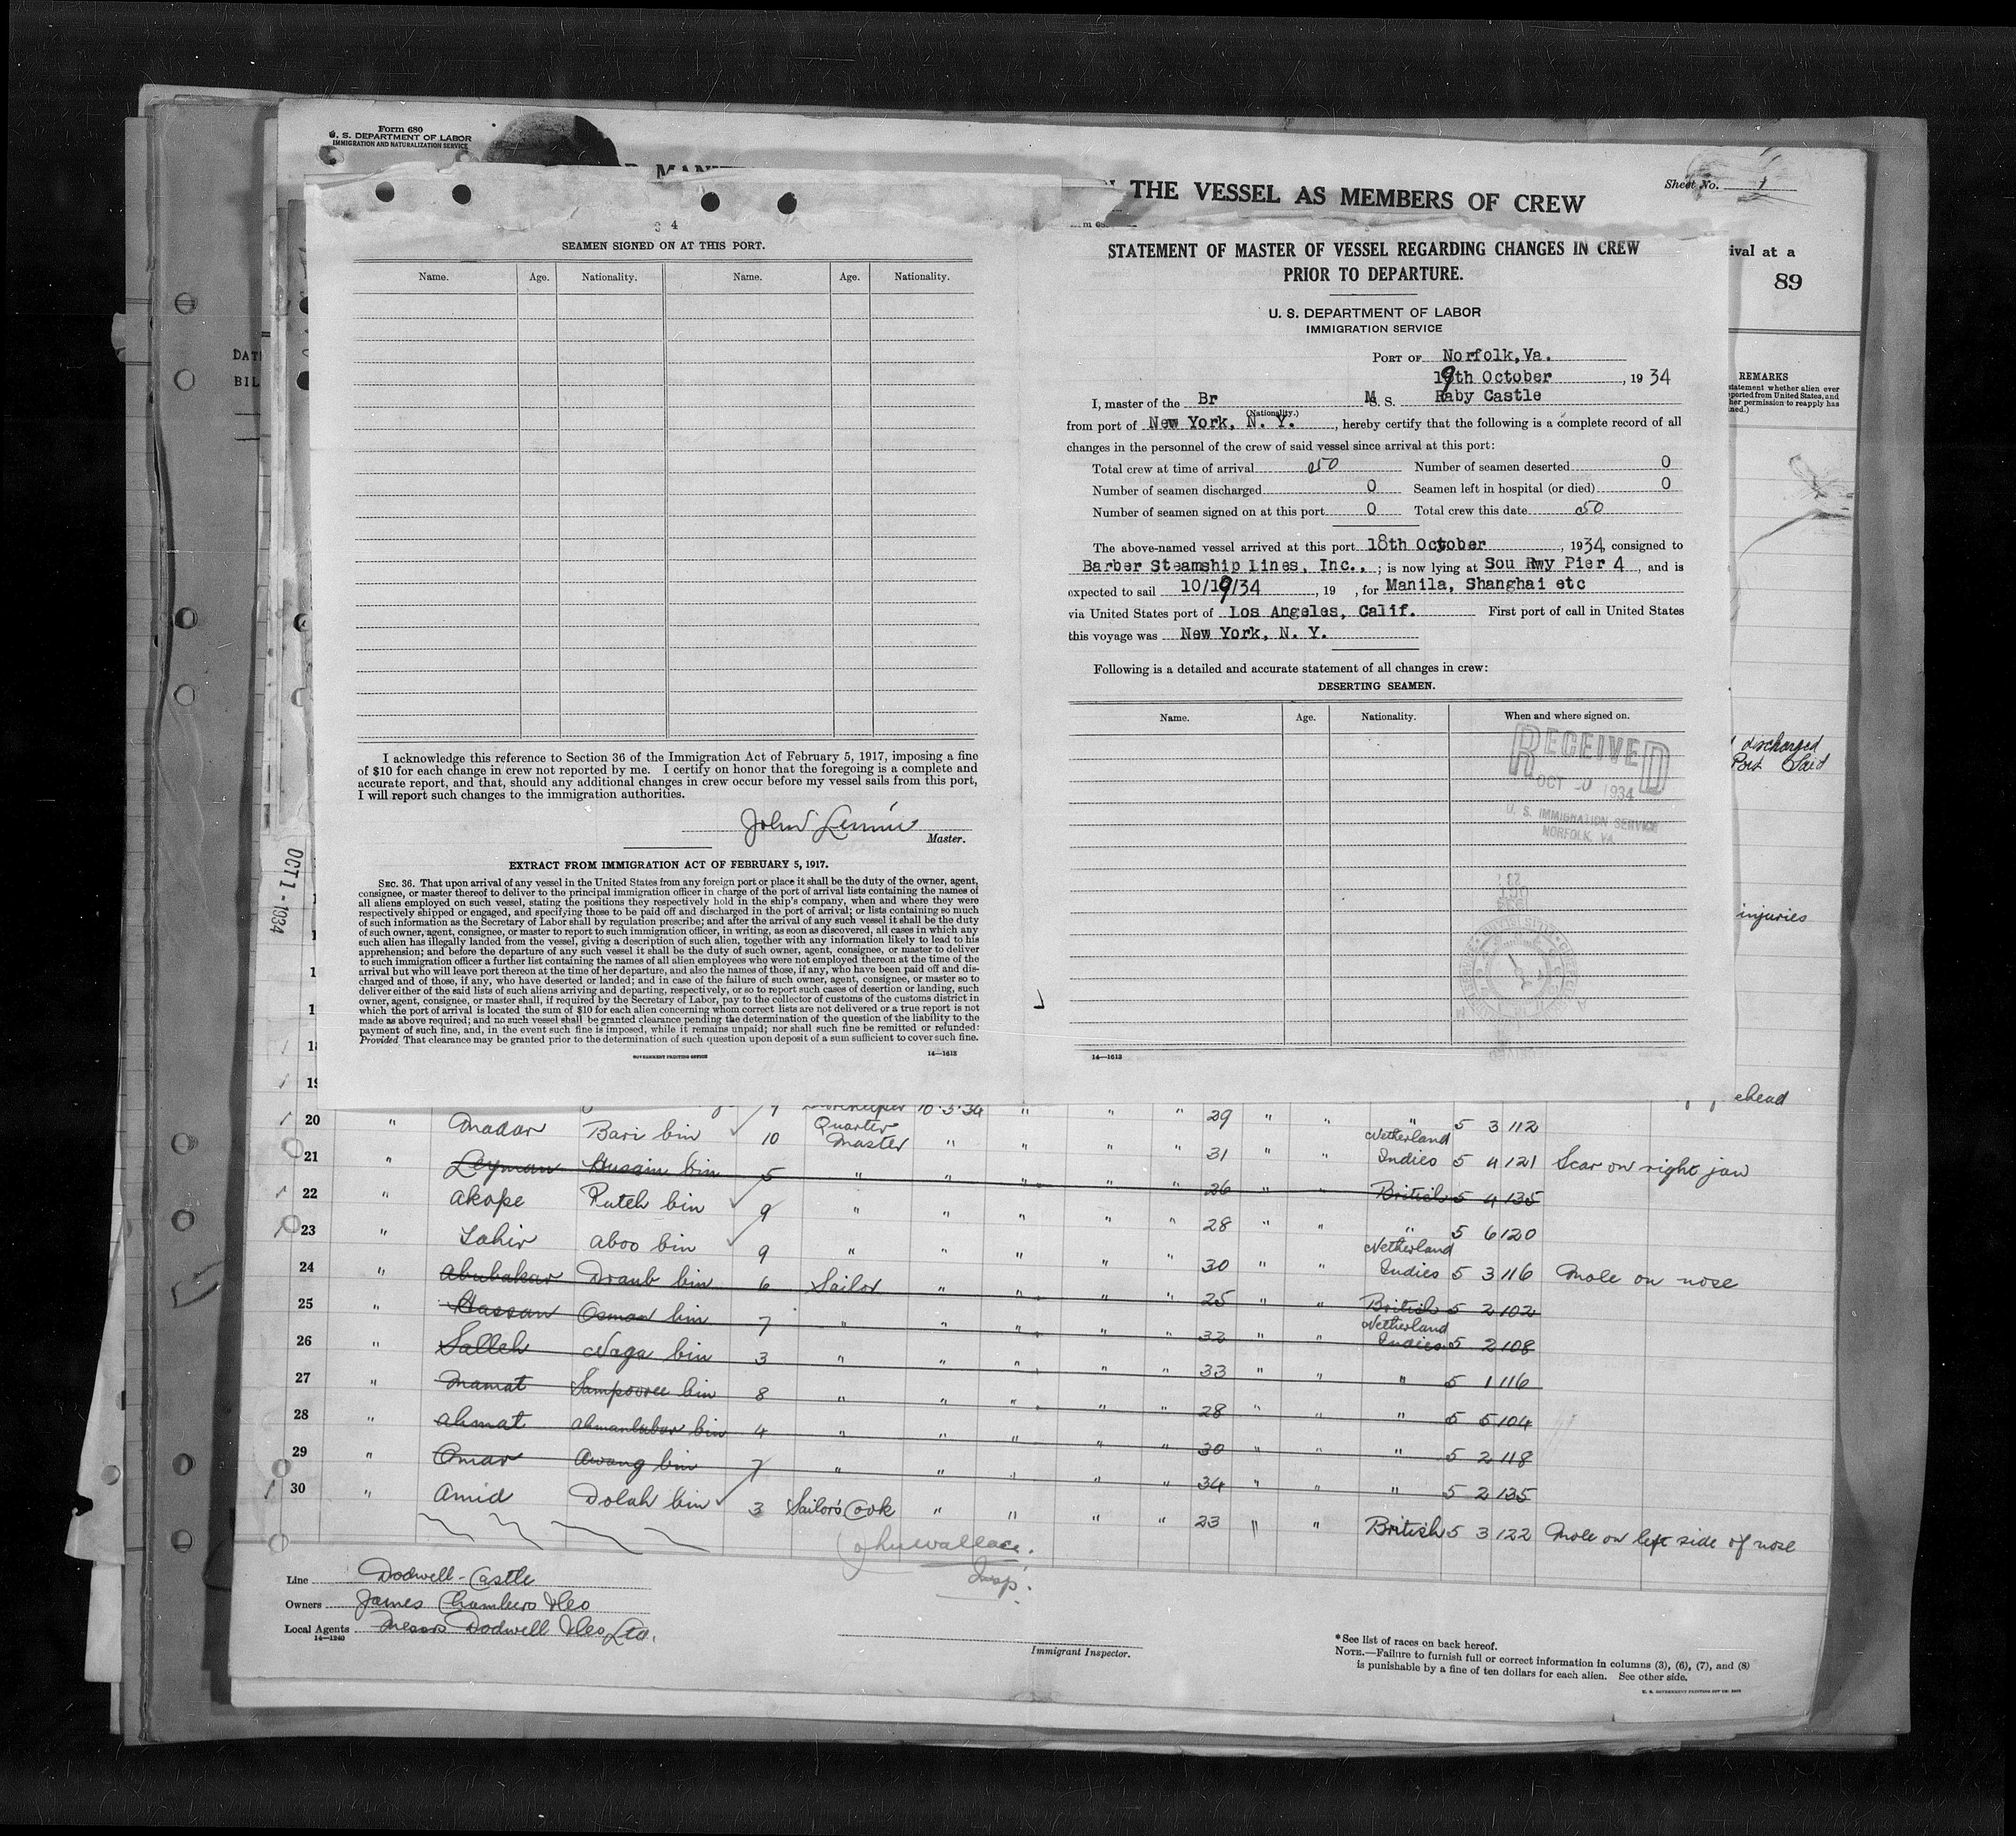 Form 680
U. S. DEPARTMENT OF LABOR
IMMIGRATION AND NATURALIZATION SERVICE
THE VESSEL AS MEMBERS OF CREW
Sheet No. 1
ival at a
89
REMARKS
DAT
BIL
OCT 1 - 1934
4
SEAMEN SIGNED ON AT THIS PORT.
Name. Age. Nationality. Name. Age. Nationality.
I acknowledge this reference to Section 36 of the Immigration Act of February 5, 1917, imposing a fine
of $10 for each change in crew not reported by me. I certify on honor that the foregoing is a complete and
accurate report, and that, should any additional changes in crew occur before my vessel sails from this port,
I will report such changes to the immigration authorities.
John
Master.
EXTRACT FROM IMMIGRATION ACT OF FEBRUARY 5, 1917.
SEC. 36. That upon arrival of any vessel in the United States from any foreign port or place it shall be the duty of the owner, agent,
consignee, or master thereof to deliver to the principal immigration officer in charge of the port of arrival lists containing the names of
all aliens employed on such vessel, stating the positions they respectively hold in the ship's company, when and where they were
respectively shipped or engaged, and specifying those to be paid off and discharged in the port of arrival; or lists containing so much
of such information as the Secretary of Labor shall by regulation prescribe; and after the arrival of any such vessel it shall be the duty
of such owner, agent, consignee, or master to report to such immigration officer, in writing, as soon as discovered, all cases in which any
such alien has illegally landed from the vessel, giving a description of such alien, together with any information likely to lead to his
apprehension; and before the departure of any such vessel it shall be the duty of such owner, agent, consignee, or master to deliver
to such immigration officer a further list containing the names of all alien employees who were not employed thereon at the time of the
arrival but who will leave port thereon at the time of her departure, and also the names of those, if any, who have been paid off and dis-
charged and of those, if any, who have deserted or landed; and in case of the failure of such owner, agent, consignee, or master so to
deliver either of the said lists of such aliens arriving and departing, respectively, or so to report such cases of desertion or landing, such
owner, agent, consignee, or master shall, if required by the Secretary of Labor, pay to the collector of customs of the customs district in
which the port of arrival is located the sum of $10 for each alien concerning whom correct lists are not delivered or a true report is not
made as above required; and no such vessel shall be granted clearance pending the determination of the question of the liability to the
payment of such fine, and, in the event such fine is imposed, while it remains unpaid; nor shall such fine be remitted or refunded:
Provided That clearance may be granted prior to the determination of such question upon deposit of a sum sufficient to cover such fine.
GOVERNMENT PRINTING OFFICE 14—1613
STATEMENT OF MASTER OF VESSEL REGARDING CHANGES IN CREW
PRIOR TO DEPARTURE.
U. S. DEPARTMENT OF LABOR
IMMIGRATION SERVICE
PORT OF Norfolk, Va.
19th October, 1934
I, master of the Br M S. Raby Castle
(Nationality.)
from port of New York, N. Y., hereby certify that the following is a complete record of all
changes in the personnel of the crew of said vessel since arrival at this port:
Total crew at time of arrival 50 Number of seamen deserted 0
Number of seamen discharged 0 Seamen left in hospital (or died) 0
Number of seamen signed on at this port 0 Total crew this date 50
The above-named vessel arrived at this port 18th October, 1934, consigned to
Barber Steamship Lines, Inc., ; is now lying at Sou Rwy Pier 4, and is
expected to sail 10/19/34, 19 , for Manila, Shanghai etc
via United States port of Los Angeles, Calif. First port of call in United States
this voyage was New York, N. Y.
Following is a detailed and accurate statement of all changes in crew:
DESERTING SEAMEN.
Name. Age. Nationality. When and where signed on.
RECEIVED
OCT 1934
U. S. IMMIGRATION SERVICE
NORFOLK, VA
14—1613
discharged
Port Said
injuries
ehead
19 Storekeeper 10·3·34 " " " 29 " " " 5 3 112
20 " Madar Bari bin 10 Quarter Master " " " " 31 " " Netherland Indies 5 4 121 Scar on right jaw
21 " Leyman Husain bin 5 " " " " " 26 " " British 5 4 135
22 " Akope Puteh bin 9 " " " " " 28 " " " 5 6 120
23 " Tahir Aboo bin 9 " " " " " 30 " " Netherland Indies 5 3 116 Mole on nose
24 " Abubakar Draub bin 6 Sailor " " " " 25 " " British 5 2 102
25 " Hassan Osman bin 7 " " " " " 32 " " Netherland Indies 5 2 108
26 " Salleh Naga bin 3 " " " " " 33 " " " 5 1 116
27 " Mamat bin 8 " " " " " 28 " " " 5 5 104
28 " Ahmat bin 4 " " " " " 30 " " " 5 2 118
29 " Omar Awang bin 7 " " " " " 34 " " " 5 2 135
30 " Amid Dolah bin 3 Sailor's Cook " " " " 23 " " British 5 3 122 Mole on left side of nose
John Wallace
Insp.
Line Dodwell-Castle
Owners James Chambers & Co
Local Agents Messrs Dodwell & Co Ltd.
14—1240
Immigrant Inspector.
* See list of races on back hereof.
NOTE.—Failure to furnish full or correct information in columns (3), (6), (7), and (8)
is punishable by a fine of ten dollars for each alien. See other side.